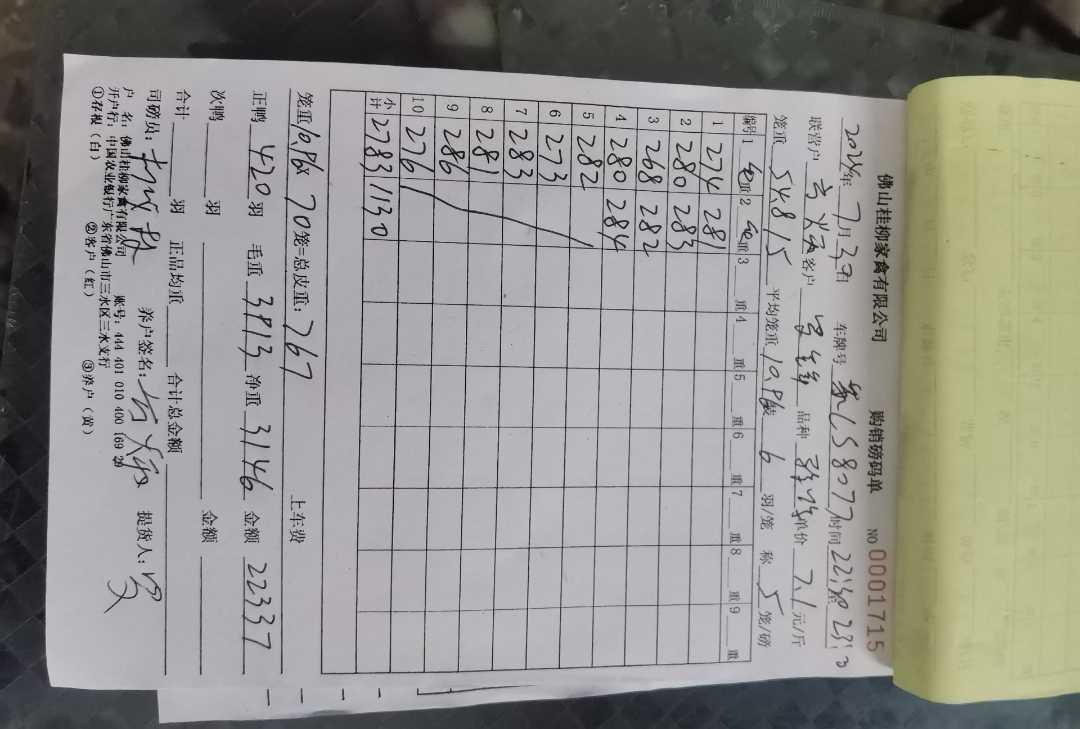 佛山桂柳家禽有限公司 购销磅码单 NO 0001715
2024年7月3日 车牌号 C58077 时间 22:30 23:
联营户 客户 品种 单价 7.1 元/斤
笼重 548/5 平均笼重 10.96 6 羽/笼 称 5 笼/磅
编号 1 毛重 2 毛重 3 重 4 重 5 重 6 重 7 重 8 重 9 重
1 274 281
2 280 283
3 268 282
4 280 284
5 282
6 273
7 283
8 281
9 286
10 276
小计 2783 1130
笼重 10.96 70 笼=总皮重: 767 上车费
正鸭 420 羽 毛重 3913 净重 3146 金额 22337
次鸭 羽 金额
合计 羽 正品均重 合计总金额
司磅员: 养户签名: 提货人:
户 名: 佛山桂柳家禽有限公司 账号: 444 401 010 400 169 29
开户行: 中国农业银行广东省佛山市三水区三水支行
①存根(白) ②客户(红) ③养户(黄)